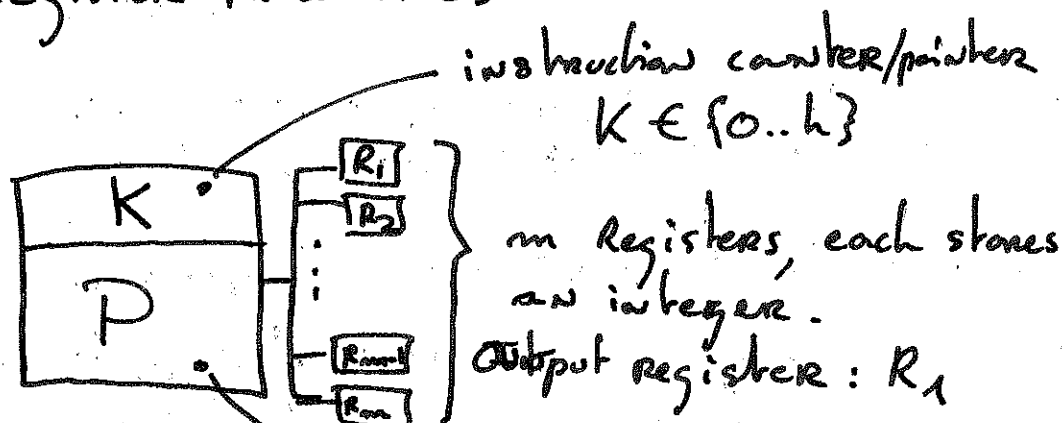 instruction counter/pointer
K ∈ {0..h}
K
P
R1
R2
Rm-1
Rm
m Registers, each stores
an integer.
Output register: R1